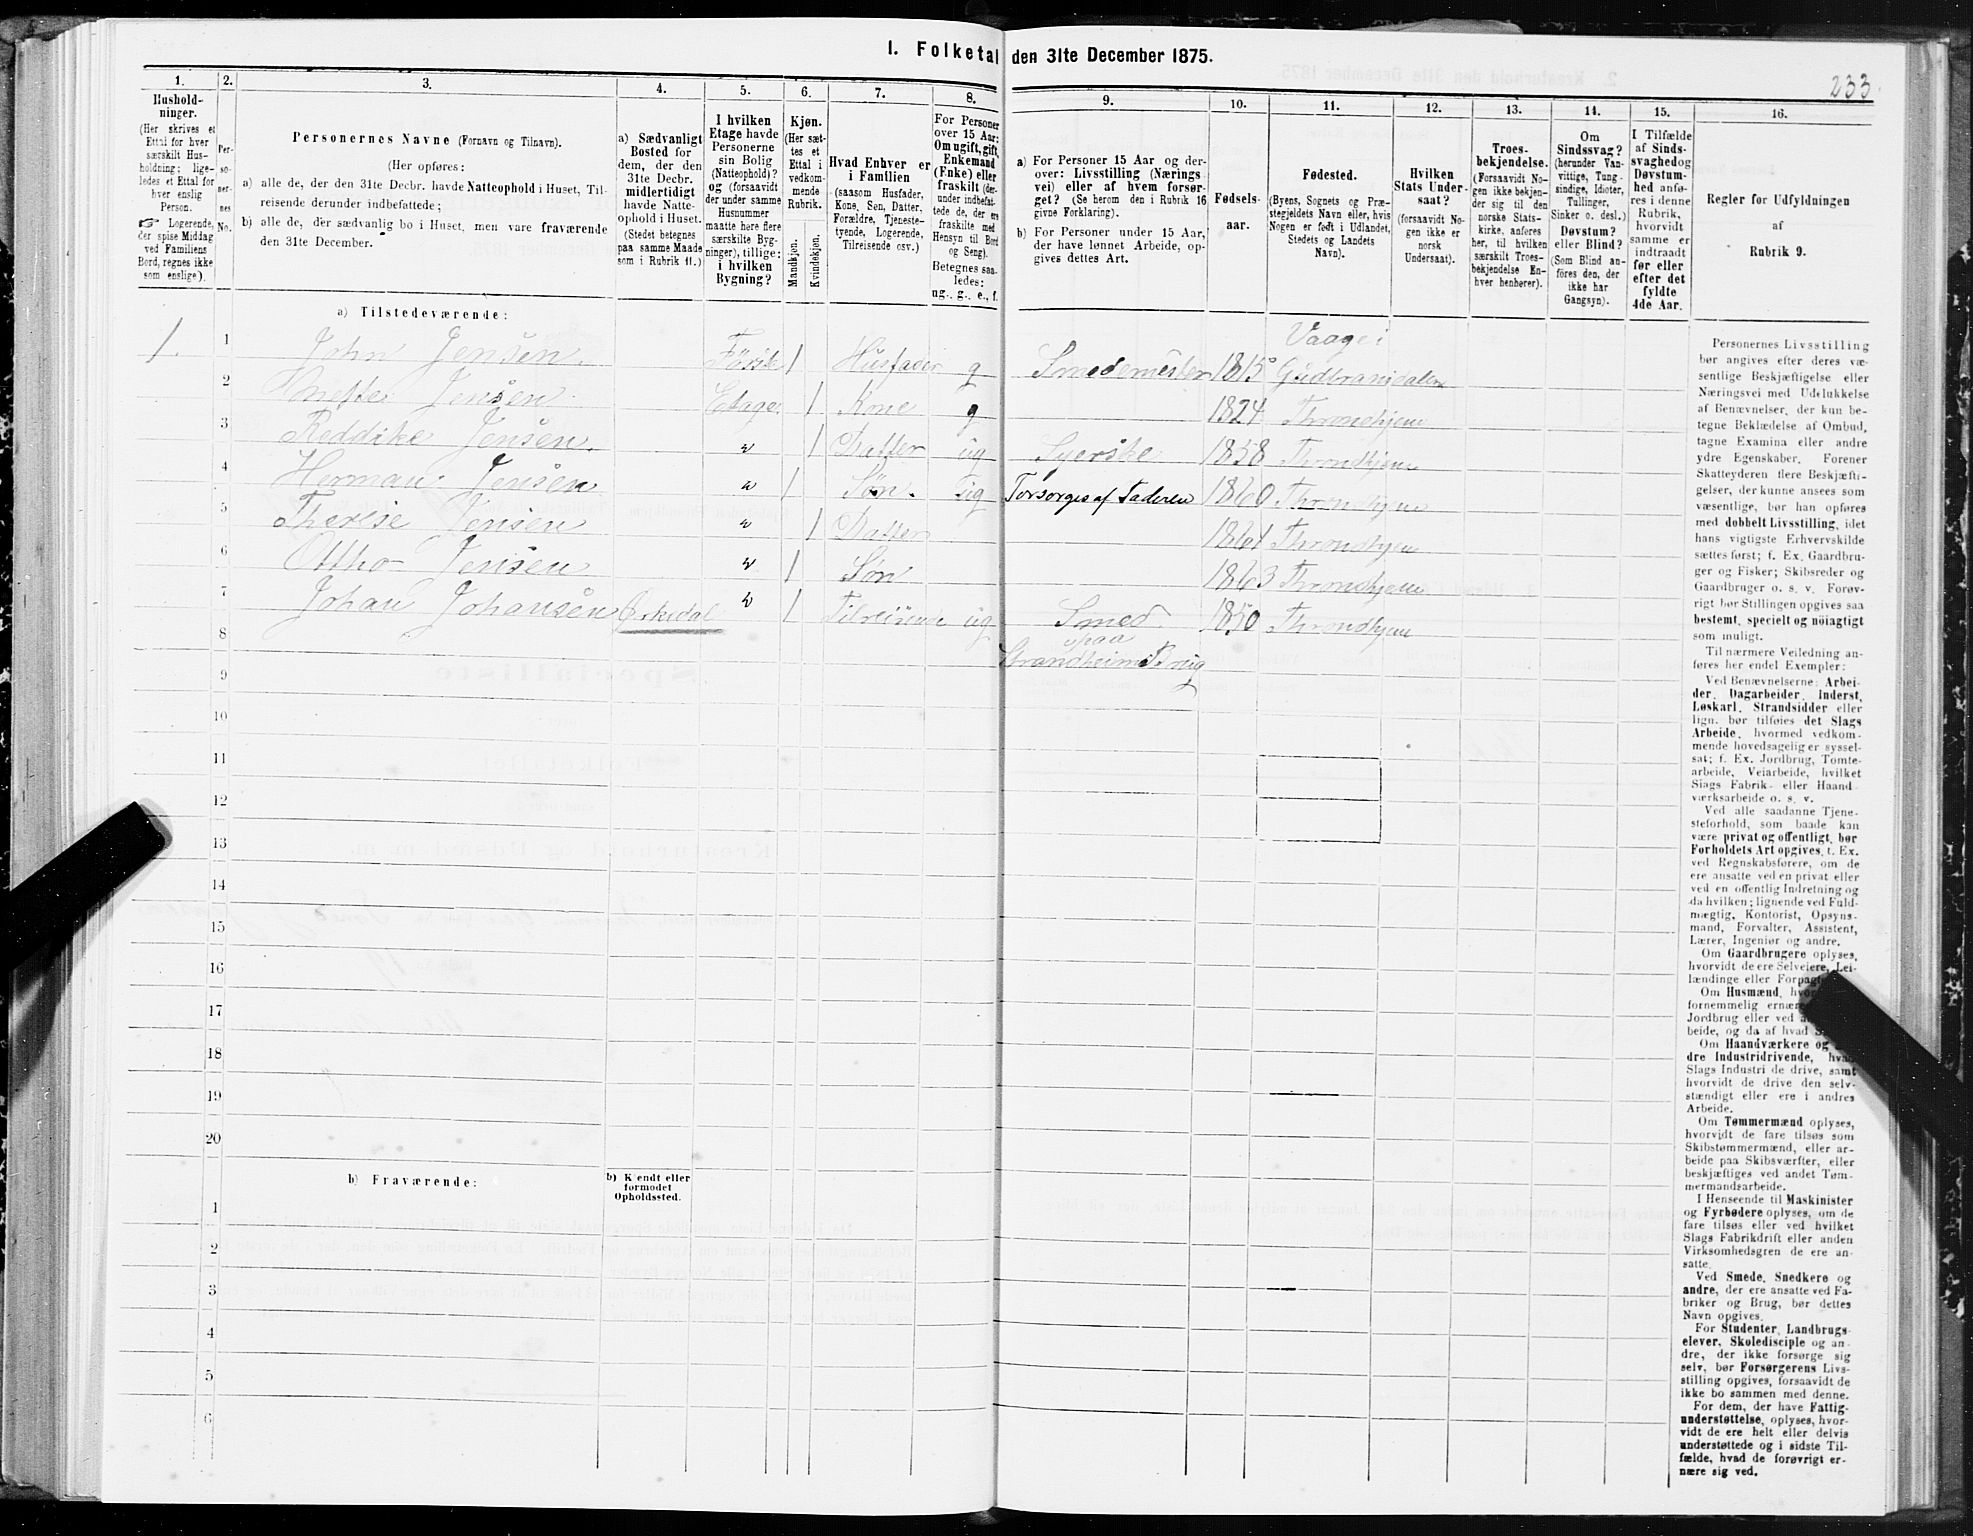 I. Folketal den 31te December 1875.
233.
1. 2. 3. 4. 5. 6. 7. 8. 9. 10. 11. 12. 13. 14. 15. 16.
Hushold-
ninger.
(Her skrives et
Ettal for hver
særskilt Hus-
holdning; lige-
ledes et Ettal for
hver enslig
Person.
☞ Logerende,
der spise Middag
ved Familiens
Bord, regnes ikke
som enslige).
Per-
so-
ner-
nes
No.
Personernes Navne (Fornavn og Tilnavn).
(Her opføres:
a) alle de, der den 31te Decbr. havde Natteophold i Huset, Til-
reisende derunder indbefattede;
b) alle de, der sædvanlig bo i Huset, men vare fraværende
den 31te December.
a) Sædvanligt
Bosted for
dem, der den
31te Decbr.
midlertidigt
havde Natte-
ophold i Huset.
(Stedet betegnes
paa samme Maade
som i Rubrik 11.)
I hvilken
Etage havde
Personerne
sin Bolig
(Natteophold)?
og (forsaavidt
der under samme
Husnummer
maatte høre flere
særskilte Byg-
ninger), tillige:
i hvilken
Bygning?
Kjøn.
(Her sæt-
tes et
Ettal i
vedkom-
mende
Rubrik.
Mandkjøn.
Kvindekjøn.
Hvad Enhver er
i Familien
(saasom Husfader,
Kone, Søn, Datter,
Forældre, Tjeneste-
tyende, Logerende,
Tilreisende osv.)
For Personer
over 15 Aar:
Om ugift, gift,
Enkemand
(Enke) eller
fraskilt (der-
under indbefat-
tede de, der ere
fraskilte med
Hensyn til Bord
og Seng).
Betegnes saa-
ledes:
ug., g., e., f.
a) For Personer 15 Aar og der-
over: Livsstilling (Nærings
vei) eller af hvem forsør-
get? (Se herom den i Rubrik 16
givne Forklaring).
b) For Personer under 15 Aar,
der have lønnet Arbeide, op-
gives dettes Art.
Fødsels-
aar.
Fødested.
(Byens, Sognets og Præ-
stegjeldets Navn eller, hvis
Nogen er født i Udlandet,
Stedets og Landets
Navn).
Hvilken
Stats Under-
saat?
(forsaavidt No-
gen ikke er
norsk
Undersaat).
Troes-
bekjendelse.
(Forsaavidt No-
gen ikke bekjen-
der sig til den
norske Stats-
kirke, anføres
her, til hvilken
særskilt Troes-
bekjendelse En-
hver henhører).
Om
Sindssvag?
(herunder Van-
vittige, Tung-
sindige, Idioter,
Tullinger,
Sinker o. desl.)
Døvstum?
eller Blind?
(Som Blind an-
føres den, der
ikke har
Gangsyn).
I Tilfælde
af Sinds-
svaghed og
Døvstum-
hed anfø-
res i denne
Rubrik,
hvorvidt
samme er
indtraadt
før eller
efter det
fyldte
4de Aar.
Regler for Udfyldningen
af
Rubrik 9.
a) Tilstedeværende:
1. 1 John Jensen. Förste 1 Husfader g Smedemester 1815 Vaage i Gudbransdalen
2 Mette Jensen Etage 1 Kone g 1824 Throndhjem
3 Jensen. " 1 Datter ug Syerske 1858 Throndhjem
4 Herman Jensen " 1 Søn. ug Forsorges af Faderen 1860 Throndhjem
5 Therese Jensen " 1 Datter 1861 Throndhjem
6 Ottho Jensen " 1 Søn 1863 Throndhjem
7 Johan Johansen Orkedal " 1 Tilreisende ug Smed 1850 Throndhjem
8 paa
Strandheims Brug
9
10
11
12
13
14
15
16
17
18
19
20
b) Fraværende:
b) Kjendt eller
formodet
Opholdssted.
1
2
3
4
5
6
Personernes Livsstilling
bør angives efter deres væ-
sentlige Beskjæftigelse eller
Næringsvei med Udelukkelse
af Benævnelser, der kun be-
tegne Beklædelse af Ombud,
tagne Examina eller andre
ydre Egenskaber. Forener
Skatteyderen flere Beskjæfti-
gelser, der kunne ansees som
væsentlige, bør han opføres
med dobbelt Livsstilling, idet
hans vigtigste Erhvervskilde
sættes først; f. Ex. Gaardbru-
ger og Fisker; Skibsreder og
Gaardbruger o. s. v. Forøv-
rigt bør Stillingen opgives saa
bestemt, specielt og nöiagtigt
som muligt.
Til nærmere Veiledning an-
føres her endel Exempler:
Ved Benævnelserne: Arbei-
der, Dagarbeider, Inderst,
Løskarl, Strandsidder eller
lign. bør tilføies det Slags
Arbeide, hvormed vedkom-
mende hovedsagelig er syssel-
sat; f. Ex. Jordbrug, Tomte-
arbeide, Veiarbeide, hvilket
Slags Fabrik- eller Haand-
værksarbeide o. s. v.
Ved alle saadanne Tjene-
steforhold, som baade kan
være privat og offentligt, bør
Forholdets Art opgives, f. Ex.
ved Regnskabsførere, om de
ere ansatte ved en privat eller
ved en offentlig Indretning og
da hvilken; lignende ved Fuld-
mægtig, Kontorist, Opsyns-
mand, Forvalter, Assistent,
Lærer, Ingeniør og andre.
Om Gaardbrugere oplyses,
hvorvidt de ere Selveiere, Lei-
lændinge eller
Om Husmænd,
fornemmelig
Jordbrug eller ved
beide, og da af hvad
Om Haandværkere og
dre Industridrivende, hvad
Slags Industri de drive, samt
hvorvidt de drive den selv-
stændigt eller ere i andres
Arbeide.
Om Tømmermænd oplyses,
hvorvidt de fare tilsøs som
Skibstømmermænd, eller ar-
beide paa Skibsværfter, eller
beskjæftiges ved andet Tøm-
mermandsarbeide.
I Henseende til Maskinister
og Fyrbødere oplyses, om de
fare tilsøs eller ved hvilket
Slags Fabrikdrift eller anden
Virksomhedsgren de ere an-
satte.
Ved Smede, Snedkere og
andre, der ere ansatte ved Fa-
briker og Brug, bør dettes
Navn opgives.
For Studenter, Landbrugs-
elever, Skoledisciple og an-
dre, der ikke forsørge sig
selv, bør Forsørgerens Livs-
stilling opgives, forsaavidt de
ikke bo sammen med denne.
For dem, der have Fattig-
understøttelse, oplyses, hvor-
vidt de ere helt eller delvis
understøttede og i sidste Til-
fælde, hvad de forøvrigt er-
nære sig ved.